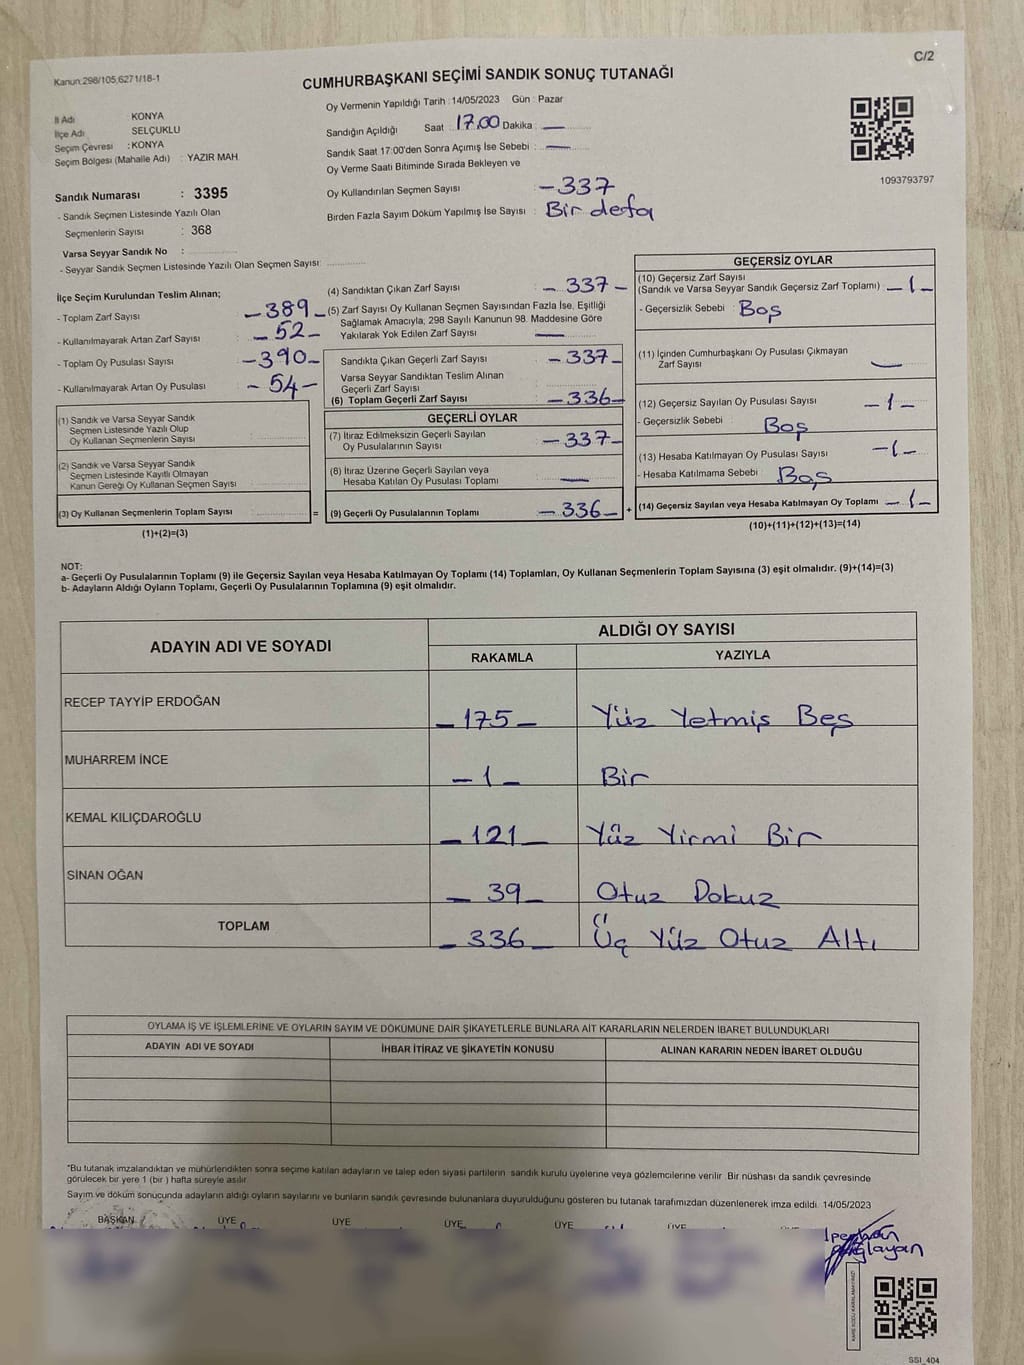 Kanun:298/105,6271/18-1
C/2
CUMHURBAŞKANI SEÇİMİ SANDIK SONUÇ TUTANAĞI
İl Adı KONYA
İlçe Adı SELÇUKLU
Seçim Çevresi : KONYA
Seçim Bölgesi (Mahalle Adı) : YAZIR MAH.
Oy Vermenin Yapıldığı Tarih : 14/05/2023 Gün : Pazar
Sandığın Açıldığı Saat : 17.00 Dakika : —
Sandık Saat 17:00'den Sonra Açımış İse Sebebi : —
Oy Verme Saati Bitiminde Sırada Bekleyen ve
Oy Kullandırılan Seçmen Sayısı : -337
Birden Fazla Sayım Döküm Yapılmış İse Sayısı : Bir defa
1093793797
Sandık Numarası : 3395
- Sandık Seçmen Listesinde Yazılı Olan
Seçmenlerin Sayısı : 368
Varsa Seyyar Sandık No :
- Seyyar Sandık Seçmen Listesinde Yazılı Olan Seçmen Sayısı:
İlçe Seçim Kurulundan Teslim Alınan;
- Toplam Zarf Sayısı : -389-
- Kullanılmayarak Artan Zarf Sayısı : -52-
- Toplam Oy Pusulası Sayısı : -390-
- Kullanılmayarak Artan Oy Pusulası : -54-
(1) Sandık ve Varsa Seyyar Sandık
Seçmen Listesinde Yazılı Olup
Oy Kullanan Seçmenlerin Sayısı :
(2) Sandık ve Varsa Seyyar Sandık
Seçmen Listesinde Kayıtlı Olmayan
Kanun Gereği Oy Kullanan Seçmen Sayısı :
(3) Oy Kullanan Seçmenlerin Toplam Sayısı =
(1)+(2)=(3)
(4) Sandıktan Çıkan Zarf Sayısı : -337-
(5) Zarf Sayısı Oy Kullanan Seçmen Sayısından Fazla İse, Eşitliği
Sağlamak Amacıyla, 298 Sayılı Kanunun 98. Maddesine Göre
Yakılarak Yok Edilen Zarf Sayısı : —
Sandıkta Çıkan Geçerli Zarf Sayısı : -337-
Varsa Seyyar Sandıktan Teslim Alınan
Geçerli Zarf Sayısı
(6) Toplam Geçerli Zarf Sayısı : -336-
GEÇERLİ OYLAR
(7) İtiraz Edilmeksizin Geçerli Sayılan
Oy Pusulalarının Sayısı : -337-
(8) İtiraz Üzerine Geçerli Sayılan veya
Hesaba Katılan Oy Pusulası Toplamı : —
(9) Geçerli Oy Pusulalarının Toplamı : -336- +
GEÇERSİZ OYLAR
(10) Geçersiz Zarf Sayısı
(Sandık ve Varsa Seyyar Sandık Geçersiz Zarf Toplamı) : -1-
- Geçersizlik Sebebi : Boş
(11) İçinden Cumhurbaşkanı Oy Pusulası Çıkmayan
Zarf Sayısı : —
(12) Geçersiz Sayılan Oy Pusulası Sayısı : -1-
- Geçersizlik Sebebi : Boş
(13) Hesaba Katılmayan Oy Pusulası Sayısı : -1-
- Hesaba Katılmama Sebebi : Boş
(14) Geçersiz Sayılan veya Hesaba Katılmayan Oy Toplamı : -1-
(10)+(11)+(12)+(13)=(14)
NOT:
a- Geçerli Oy Pusulalarının Toplamı (9) ile Geçersiz Sayılan veya Hesaba Katılmayan Oy Toplamı (14) Toplamları, Oy Kullanan Seçmenlerin Toplam Sayısına (3) eşit olmalıdır. (9)+(14)=(3)
b- Adayların Aldığı Oyların Toplamı, Geçerli Oy Pusulalarının Toplamına (9) eşit olmalıdır.
ADAYIN ADI VE SOYADI ALDIĞI OY SAYISI
RAKAMLA YAZIYLA
RECEP TAYYİP ERDOĞAN -175- Yüz Yetmiş Beş
MUHARREM İNCE -1- Bir
KEMAL KILIÇDAROĞLU -121- Yüz Yirmi Bir
SİNAN OĞAN -39- Otuz Dokuz
TOPLAM -336- Üç Yüz Otuz Altı
OYLAMA İŞ VE İŞLEMLERİNE VE OYLARIN SAYIM VE DÖKÜMÜNE DAİR ŞİKAYETLERLE BUNLARA AİT KARARLARIN NELERDEN İBARET BULUNDUKLARI
ADAYIN ADI VE SOYADI İHBAR İTİRAZ VE ŞİKAYETİN KONUSU ALINAN KARARIN NEDEN İBARET OLDUĞU
*Bu tutanak imzalandıktan ve mühürlendikten sonra seçime katılan adayların ve talep eden siyasi partilerin sandık kurulu üyelerine veya gözlemcilerine verilir. Bir nüshası da sandık çevresinde
görülecek bir yere 1 (bir) hafta süreyle asılır.
Sayım ve döküm sonucunda adayların aldığı oyların sayılarını ve bunların sandık çevresinde bulunanlara duyurulduğunu gösteren bu tutanak tarafımızdan düzenlenerek imza edildi. 14/05/2023
BAŞKAN ÜYE ÜYE ÜYE ÜYE ÜYE ÜYE
SSI_404